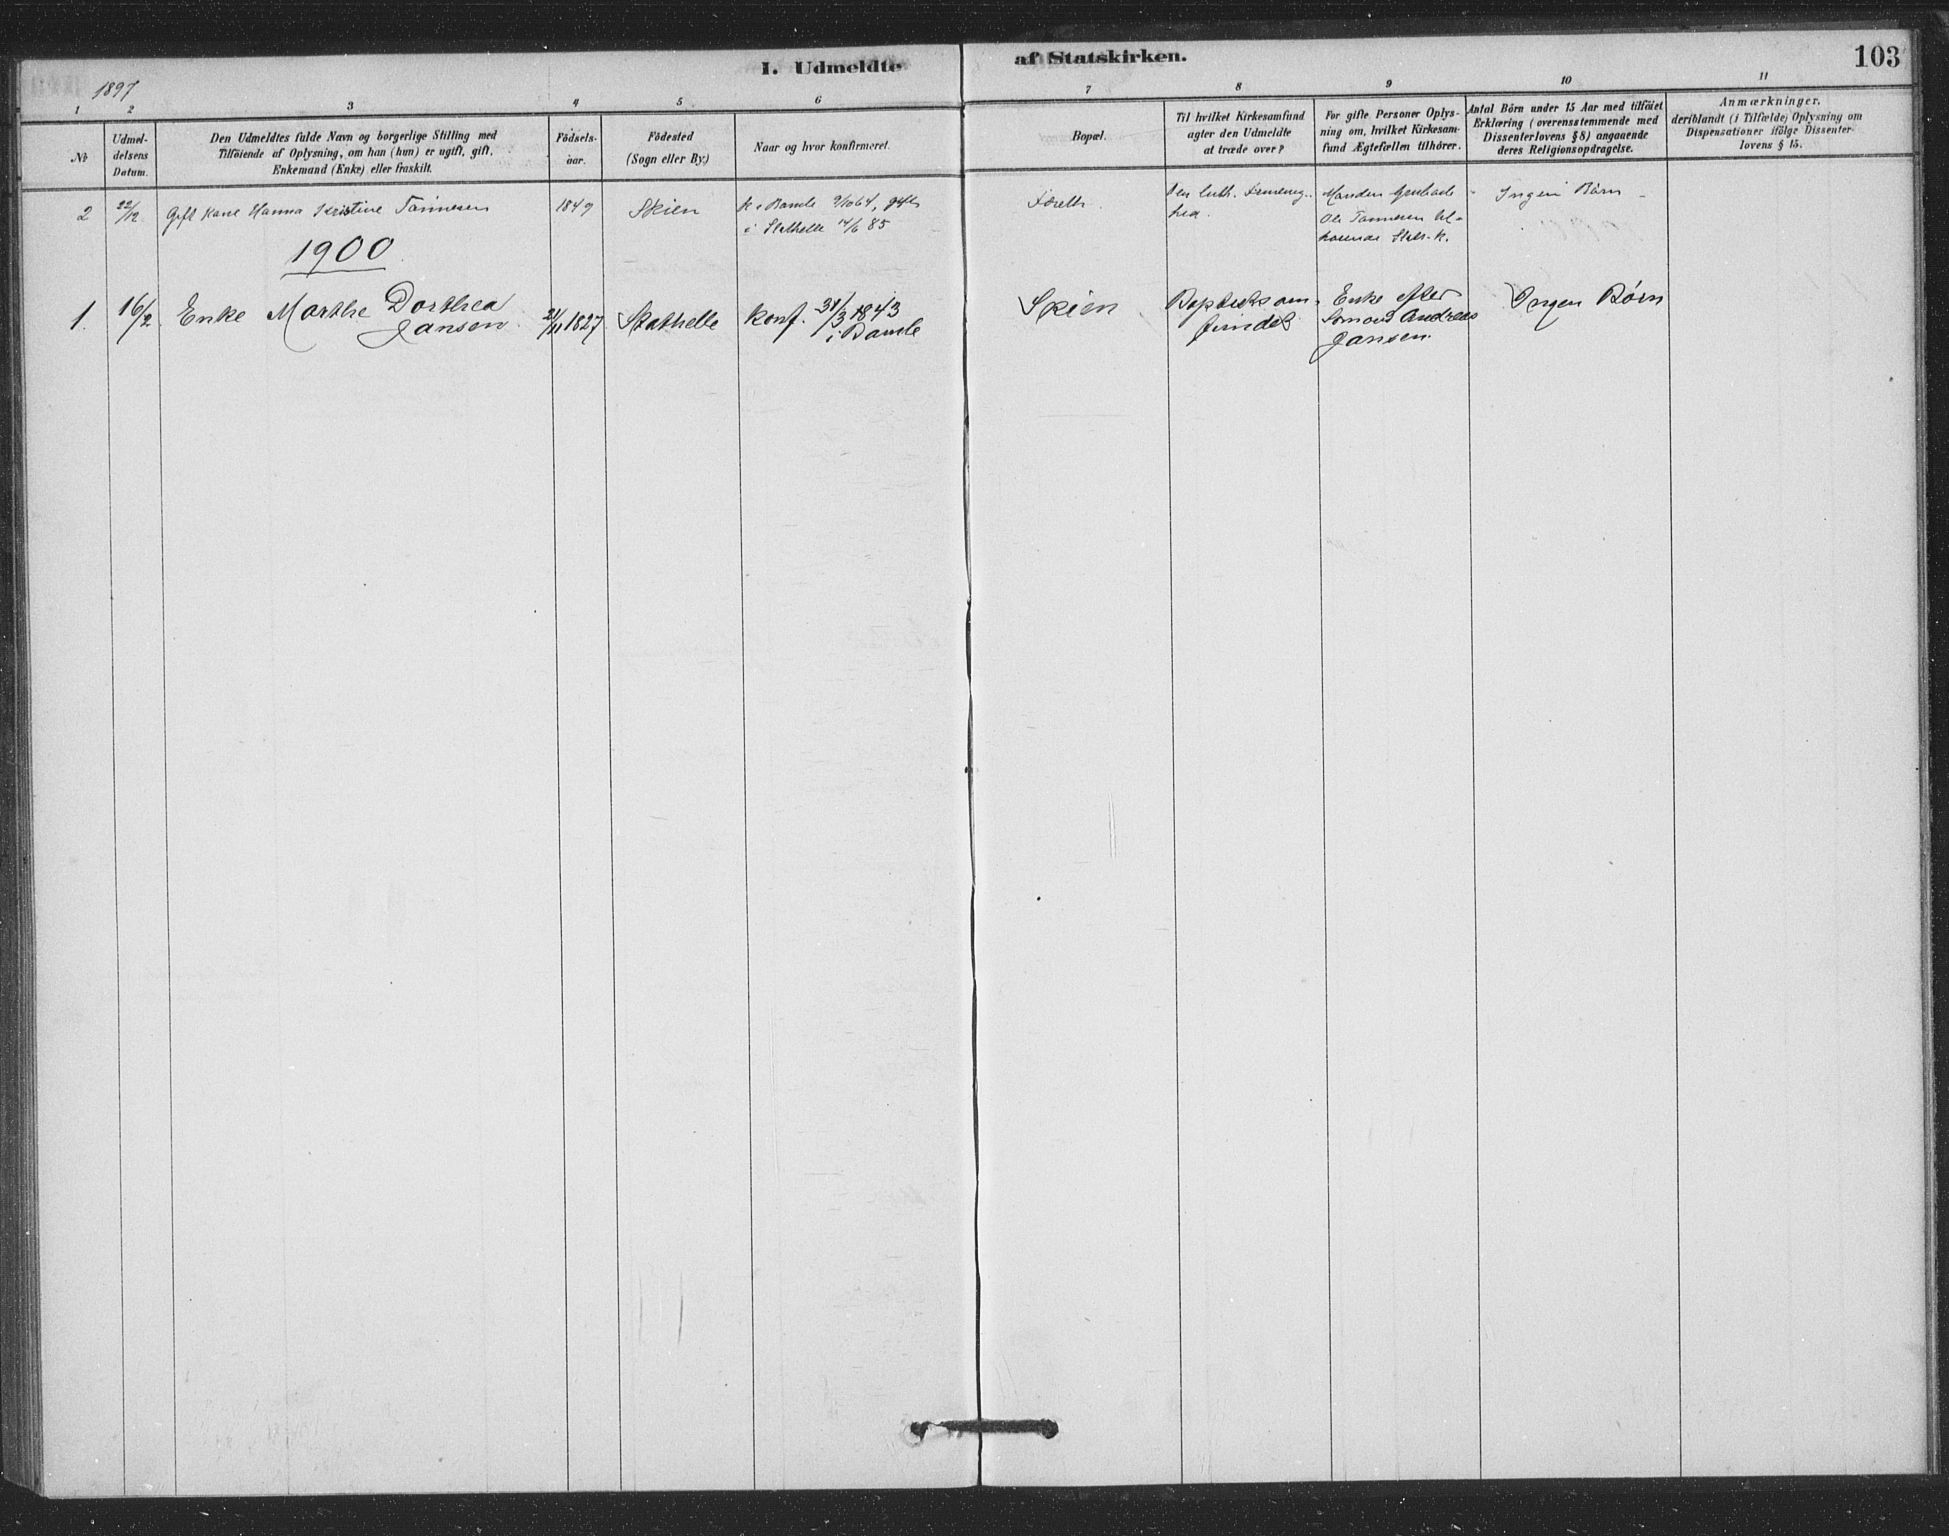 I. Udmeldte af Statskirken.
103
1897
1 2 3 4 5 6 7 8 9 10 11
No
Udmel-
delsens
Datum.
Den Udmeldtes fulde Navn og borgerlige Stilling med
Tilföiende af Oplysning, om han (hun) er ugift, gift,
Enkemand (Enke) eller fraskilt.
Födsels-
aar.
Födested
(Sogn eller By.)
Naar og hvor konfirmeret.
Bopæl.
Til hvilket Kirkesamfund
agter den Udmeldte
at træde over?
For gifte Personer Oplys-
ning om, hvilket Kirkesam-
fund Ægtefællen tilhörer.
Antal Börn under 15 Aar med tilföiet
Erklæring (overensstemmende med
Dissenterlovens § 8) angaaende
deres Religionsopdragelse.
Anmærkninger,
deriblandt (i Tilfælde) Oplysning om
Dispensationer ifölge Dissenter-
lovens § 15.
2
22/12
Gift Kone Hanna Kristine Tønnesen
1849
Skien
k. i Bamle 9/10 64, gift
i Stathelle 14/6 85
Den luth. Frimenig-
hed.
Manden
Ole Tønnesen til-
hørende Stats-K.
Ingen Børn
1900
1.
16/2
Enke Marthe Dorthea
Jansen
21/11 1827
Stathelle
Konf. 31/3 1843
i Bamle
Skien
Baptistsam-
fundet
Enke efter
Andreas
Jansen.
Ingen Børn